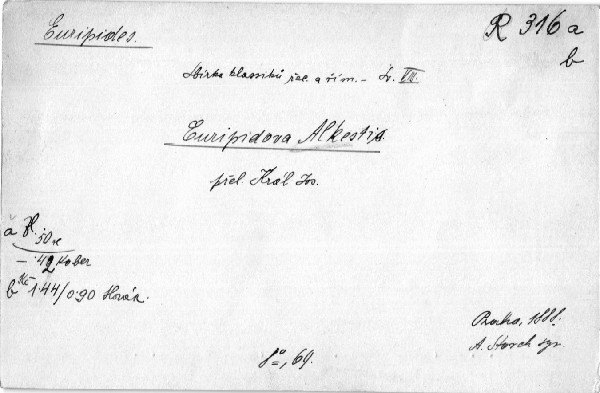 Euripides.
R 316 a
b
Sbírka klassiků řec. a řím. – Sv. VII.
Euripidova Alkestis
přel. Král Jos.
a K. 50 n
– 42 Kober
b Kč 1.44/0.90 Horák.
Praha, 1888.
A. Storch syn.
8°, 69.